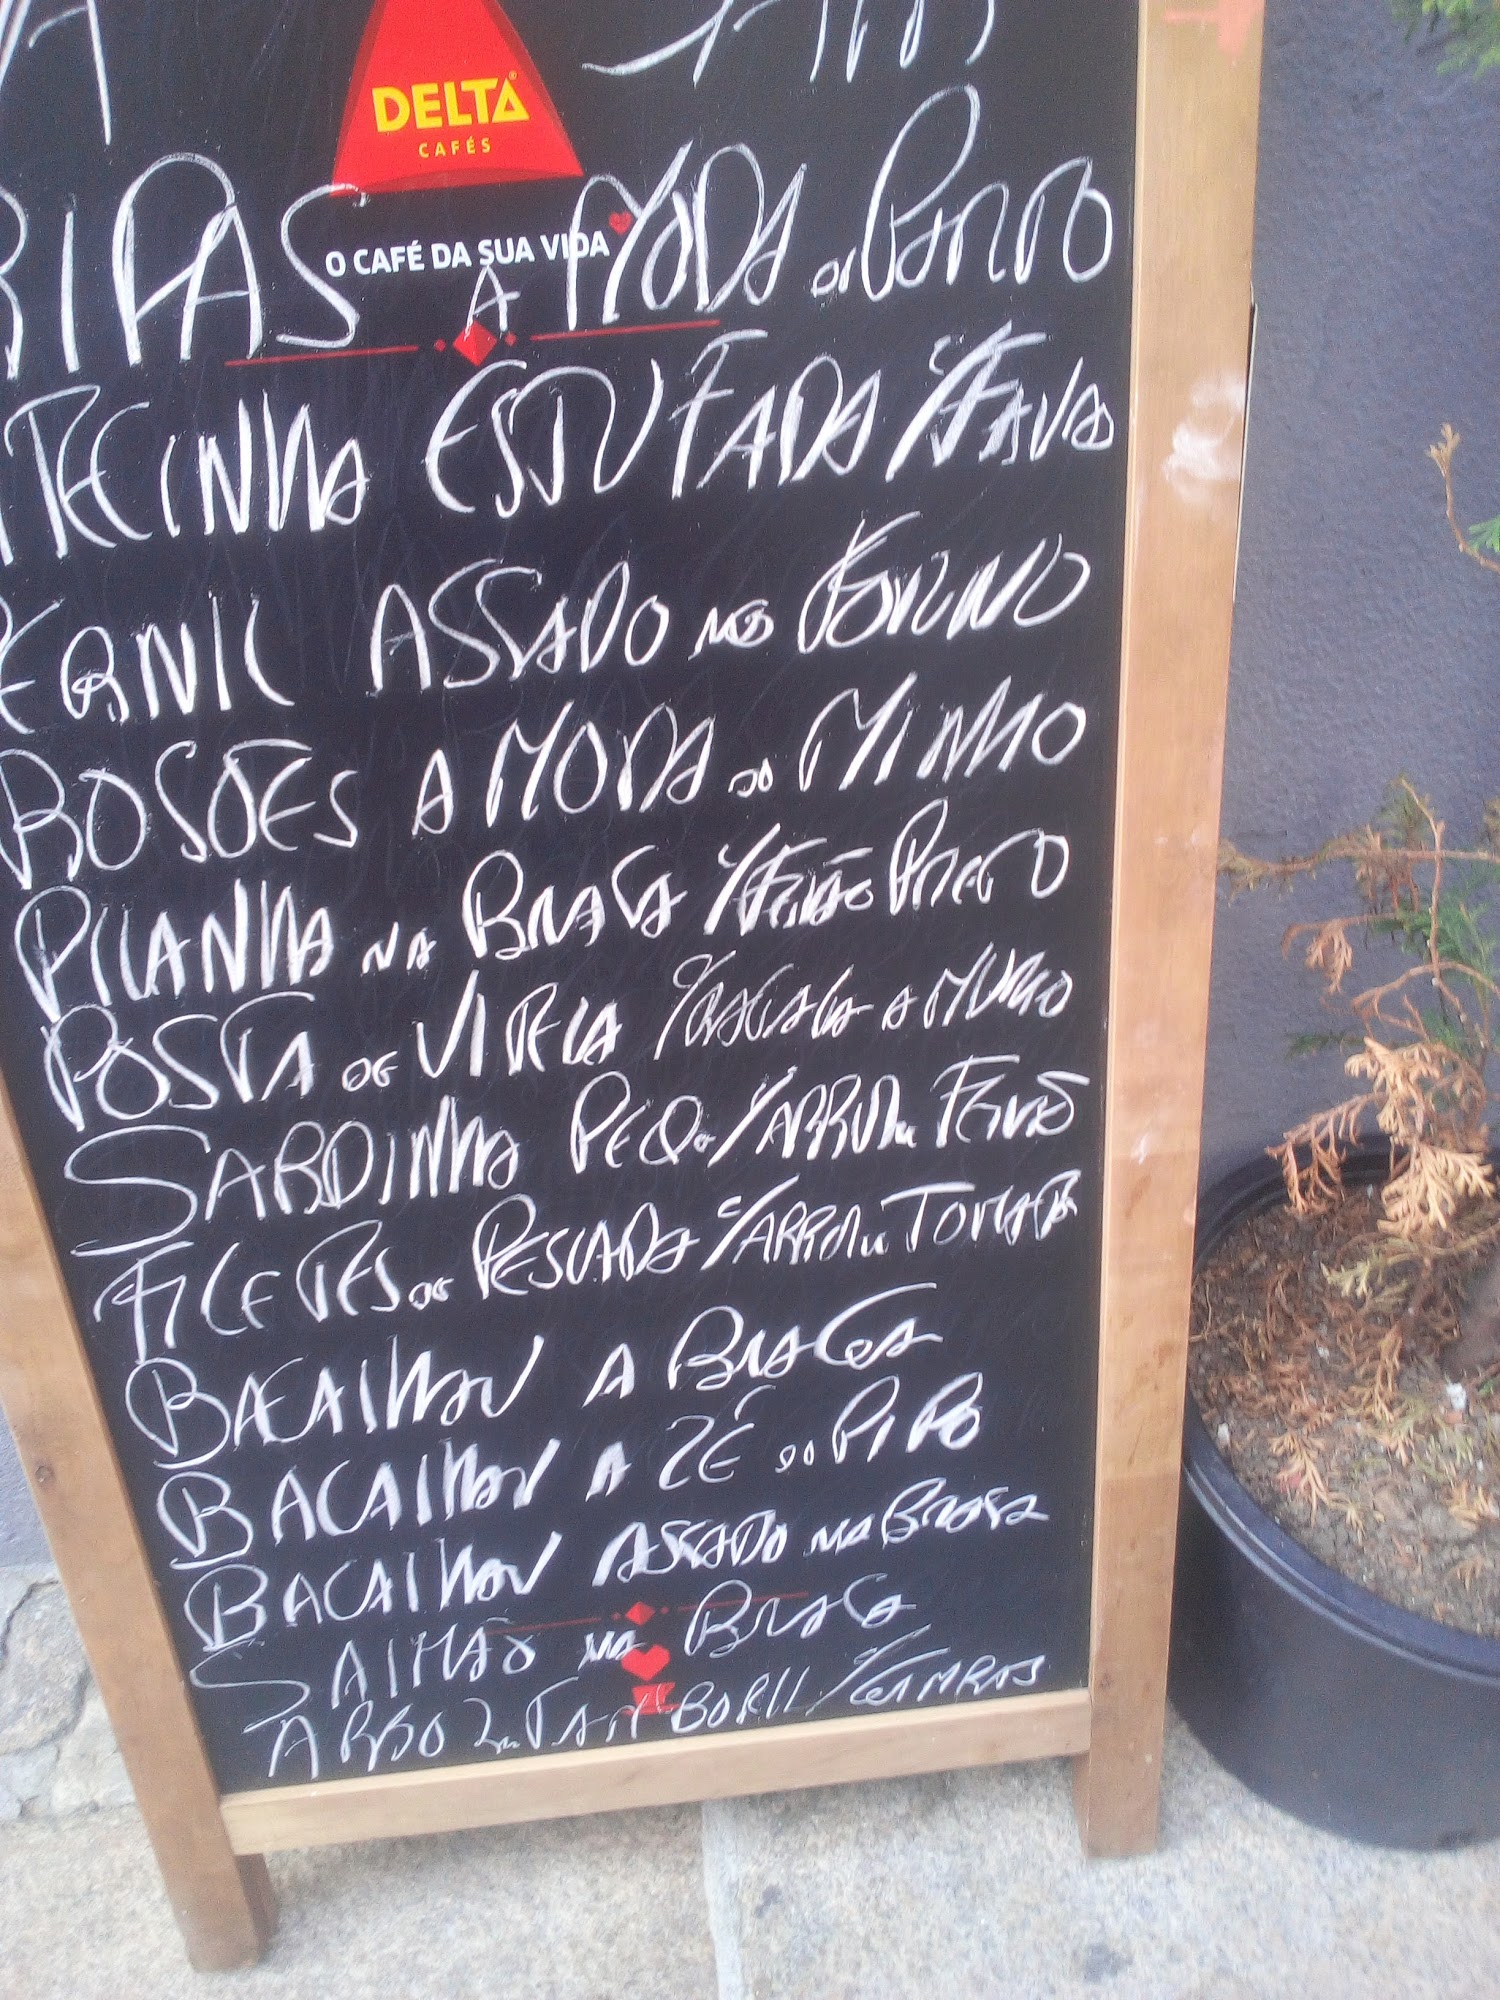 DELTA
CAFÉS
O CAFÉ DA SUA VIDA
RIPAS A MODA DO PORTO
TECINHA ESTUFADA C/FAVAS
PERNIL ASSADO NO FORNO
ROJÕES A MODA DO MINHO
PICANHA NA BRASA C/FEIJÃO PRETO
POSTA DE VITELA A MURRO
SARDINHA PEQ. C/ARROZ DE FEIJÃO
FILETES DE PESCADA C/ARROZ DE TOMATE
BACALHAU A BRAGA
BACALHAU A ZÉ DO PIPO
BACALHAU ASSADO NA BRASA
SALMÃO NA BRASA
ARROZ DE TAMBORIL C/GAMBAS